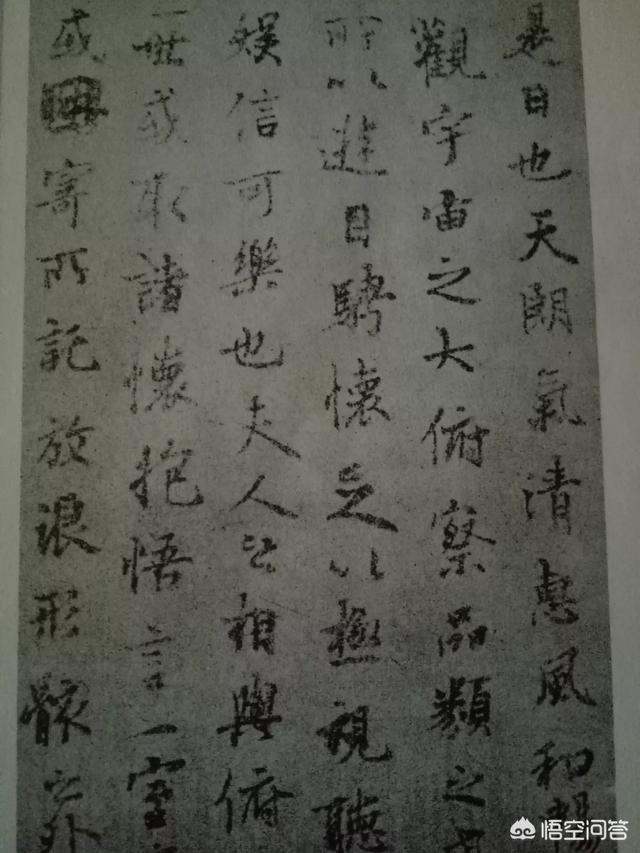 是日也天朗氣清惠風和暢
觀宇宙之大俯察品類之
所以遊目騁懷足以極視聽
娛信可樂也夫人之相與俯
一世或取諸懷抱悟言一室
或因寄所託放浪形骸之外
悟空问答